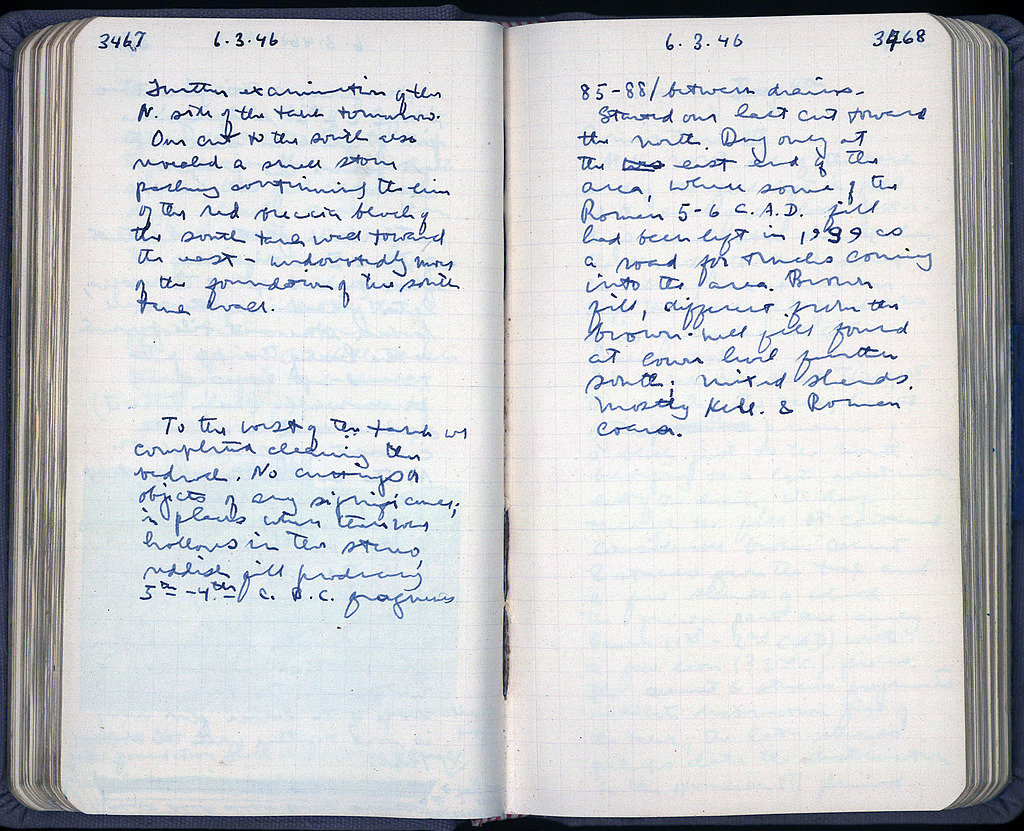 3467 6.3.46
Further examination of the
N. side of the tank tomorrow.
Our cut to the south also
revealed a small stone
packing continuing the line
of the red breccia blocks of
the south tank wall toward
the east – undoubtedly more
of the foundation of the south
tank wall.
To the west of the tank we
completed clearing the
bedrock. No cuttings or
objects of any significance;
in places where there were
hollows in the stereo,
reddish fill producing
5th–4th C. B.C. fragments
6.3.46 3468
85-88/ between drains.
Started our last cut toward
the north. Dug only at
the east end of the
area, where some of the
Roman 5-6 C. A.D. fill
had been left in 1939 as
a road for trucks coming
into the area. Brown
fill, different from the
brown fill found
at lower level further
south; mixed sherds.
Mostly Hell. & Roman
coarse.